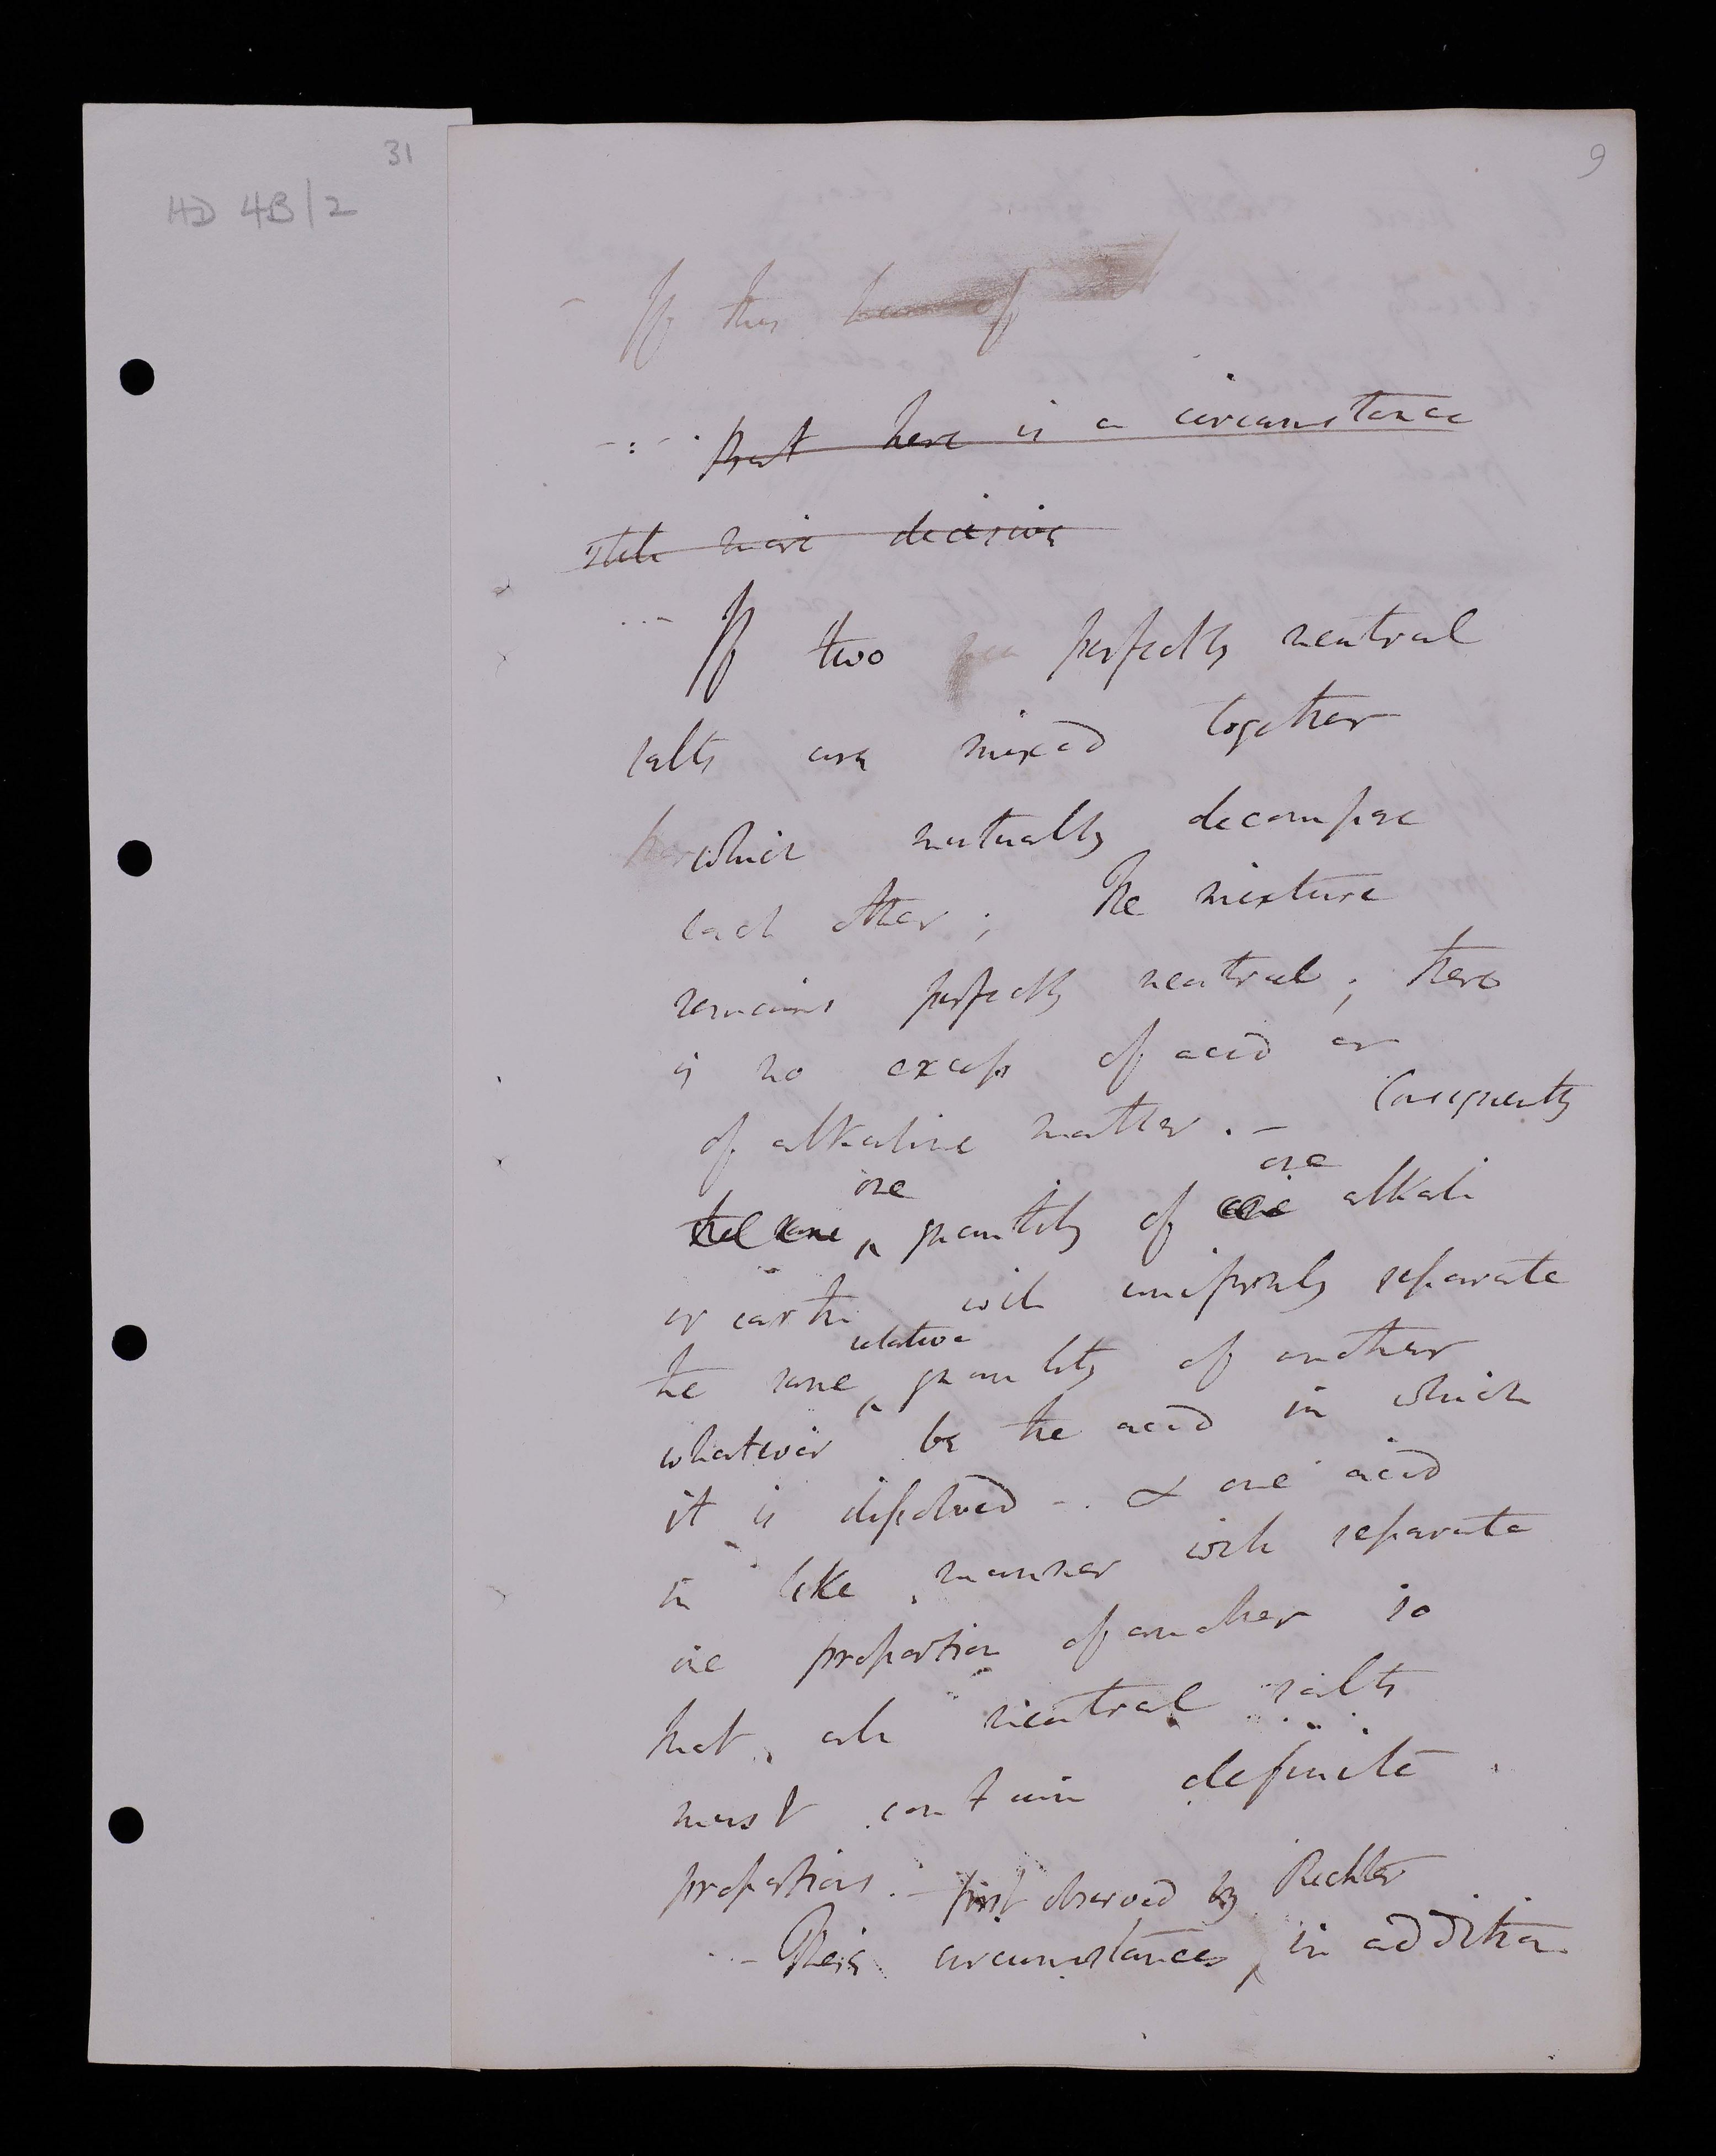 31
HD 4B/2
9
If this
-:- But here is a circumstance
still more decisive
... If two perfectly neutral
salts are mixed together
which mutually decompose
each other; the mixture
remains perfectly neutral; there
is no excess of acid or
of alkaline matter. - Consequently
one one
the same ^ quantity of alkali
or earth will uniformly separate
relative
the same ^ quantity of another
whatever be the acid in which
it is dissolved -. & one acid
in like manner will separate
one proportion of another so
that all neutral salts
must contain definite
proportions. - first observed by Richter
-- These circumstances, in addition